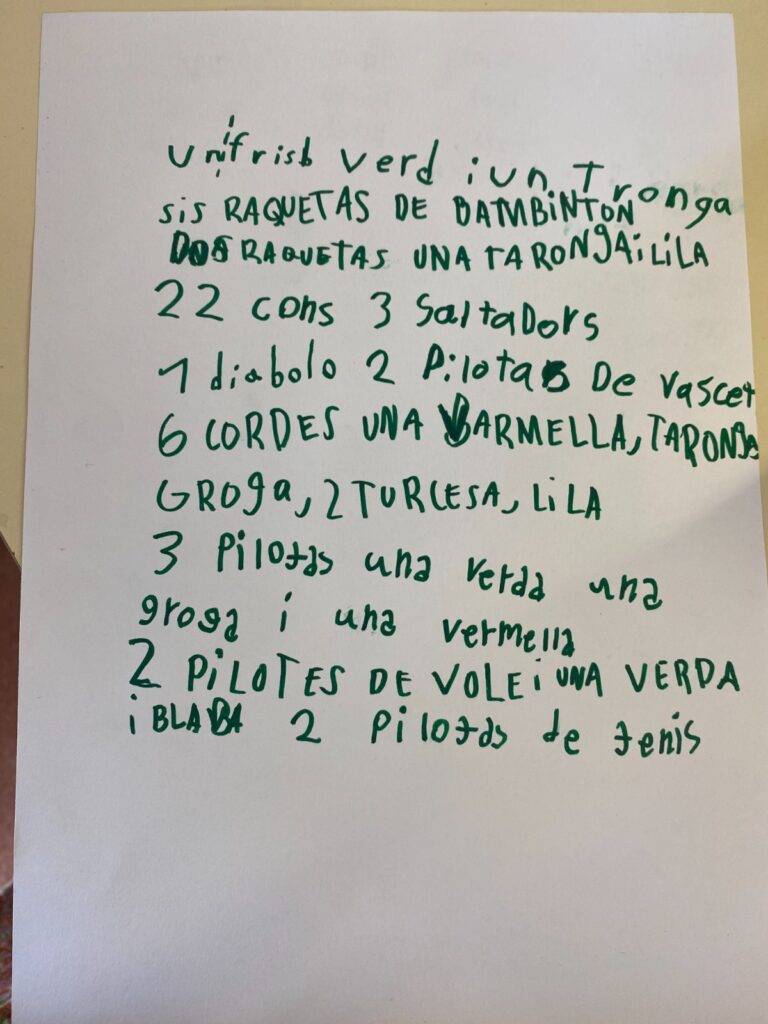 un frisb verd i un Tronga
sis RAQUETAS DE BAMBiNTON
DOS RAQUETAS UNA TARONgA i LiLA
22 cons 3 SaltaDors
1 diabolo 2 Pilotas De vascet
6 CORDES UNA VARMELLA, TARONgA
GROga, 2 TURCESA, LiLA
3 Pilotas una verda una
groga i una vermella
2 PiLOTES DE VOLEi UNA VERDA
i BLABA 2 Pilotas de tenis